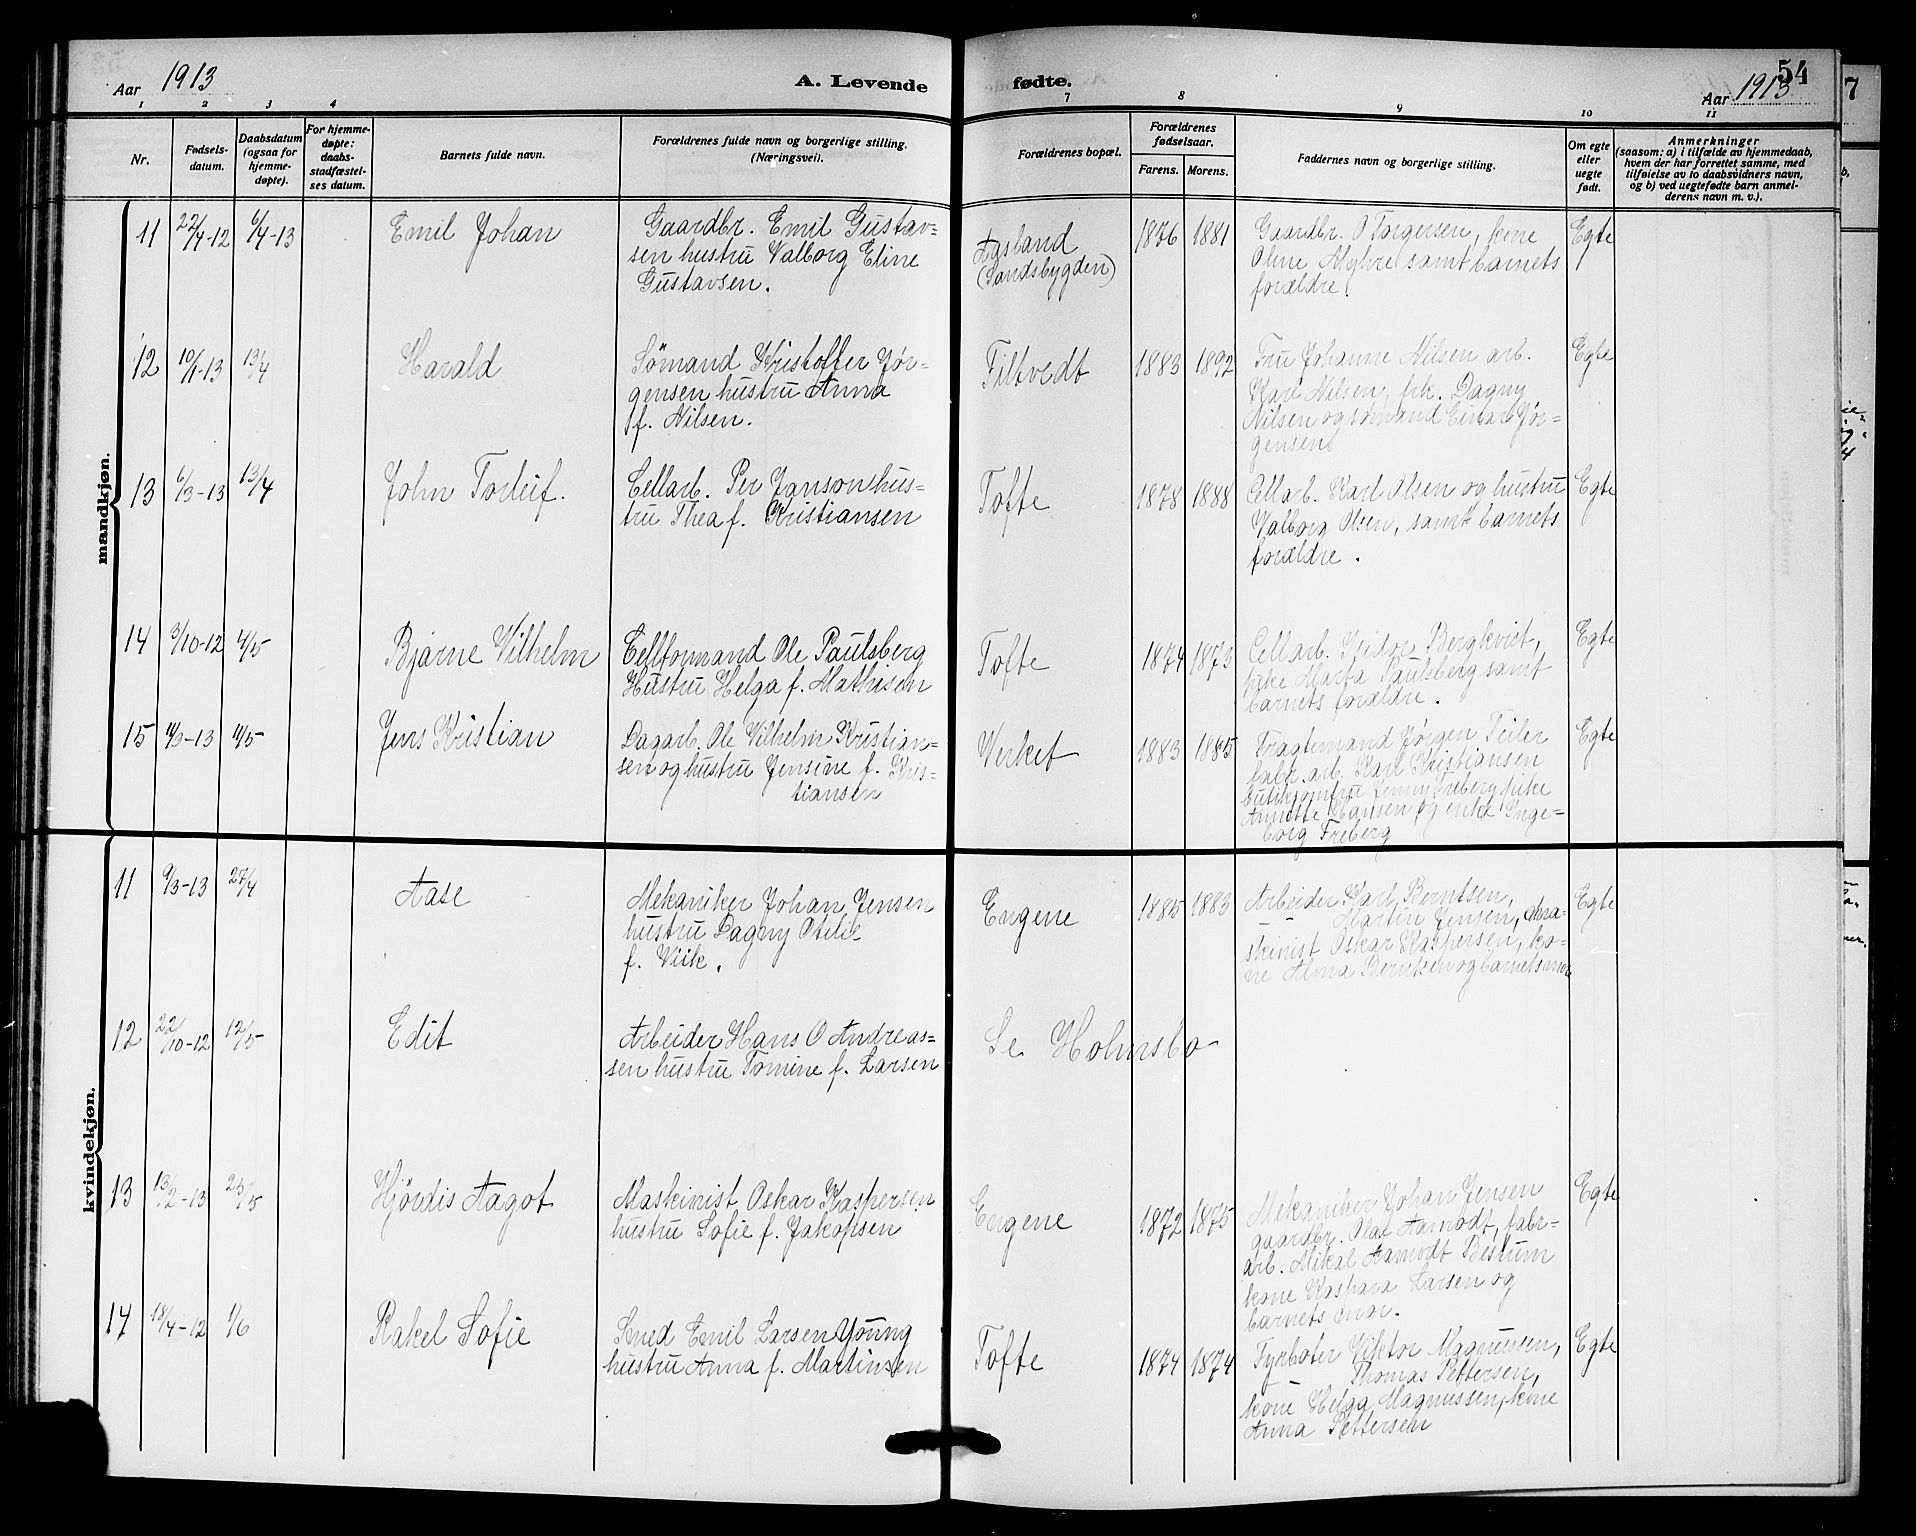 Aar 1913
A. Levende fødte.
54
Aar 1913
1 2 3 4 7 8 9 10 11
Nr.
Fødsels-
datum.
Daabsdatum
(ogsaa for
hjemme-
døpte).
For hjemme-
døpte:
daabs-
stadfæstel-
ses datum.
Barnets fulde navn.
Forældrenes fulde navn og borgerlige stilling.
(Næringsvei).
Forældrenes bopæl.
Forældrenes
fødselsaar.
Farens. Morens.
Faddernes navn og borgerlige stilling.
Om egte
eller
uegte
født.
Anmerkninger
(saasom: a) i tilfælde av hjemmedaab,
hvem der har forrettet samme, med
tilføielse av to daabsvidners navn,
og b) ved uegtefødte barn anmel-
derens navn m. v.).
mandkjøn.
11 22/4-12 6/4-13 Emil Johan
Gaardbr. Emil Gustav=
sen hustru Valborg Eline
Gustavsen.
Aasland
(Sandsbygden)
1876 1881
Gaardbr. O Torgersen, kone
Oline Myhre samt barnets
forældre.
Egte
12 10/1-13 13/4 Harald
Sömand Kristoffer Jør-
gensen hustru Anna
f. Nilsen.
Filtvedt
1883 1892
Fru Johanne Nilsen arb.
Karl Nilsen, frk. Dagny
Nilsen og sömand Einar Jør-
gensen
Egte
13 6/3-13 13/4 John Torleif.
Cellarb. Per Janson hus=
tru Thea f. Kristiansen
Tofte
1878 1888
Cellarb. Karl Olsen og hustru
Valborg Olsen, samt barnets
forældre.
Egte
14 3/10-12 4/5 Bjarne Vilhelm
Cellformand Ole Paulsberg
Hustru Helga f. Mathisen
Tofte
1874 1873
Cellarb. Isidor Bergkvist,
pike Marta Paulsberg samt
barnets forældre.
Egte
15 /3-13 11/5 Jens Kristian
Dagarb. Ole Vilhelm Kristian=
sen og hustru Jensine f. Kris=
tiansen
Verket
1883 1885
Fragtemand Jørgen Teiler
fabr. arb. Karl Kristiansen
butikjomfru Jenny Freberg pike
Annette Hansen og enke Inge=
borg Freberg
Egte
kvindekjøn.
11 9/3-13 27/4 Aase
Mekaniker Johan Jensen
hustru Dagny Otilie
f. Viik.
Engene
1885 1883
Arbeider Karl Berntsen,
— " — Martin Jensen, ma-
skinist Oskar Kaspersen, ko-
ne Alma Berntsen og barnets mor
Egte
12 22/10-12 12/5 Edit
Arbeider Hans O Andreas=
sen hustru Tomine f. Larsen
Se Holmsbo
13 13/2-13 25/5 Hjördis Aagot
Maskinist Oskar Kaspersen
hustru Sofie f. Jakopsen
Engene
1872 1875
Mekaniker Johan Jensen
gaardbr. Olaf Aamodt, fabr=
arb. Mikal Aamodt Bestum
kone Kaspara Larsen og
barnets mor.
Egte
14 18/4-12 1/6 Rakel Sofie
Smed Emil Larsen Young
hustru Anna f. Martinsen
Tofte
1874 1874
Fyrböter Viktor Magnussen,
Thomas Pettersen,
kone Helga Magnussen, kone
Anna Pettersen
Egte
7